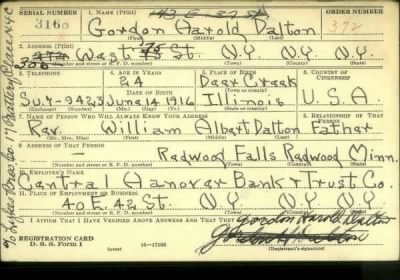 SERIAL NUMBER 1. NAME (Print) ORDER NUMBER
3168 Gordon Harold Dalton 372
(First) (Middle) (Last)
2. ADDRESS (Print)
West 75 St. N.Y. N.Y. N.Y.
(Number and street or R. F. D. number) (Town) (County) (State)
3. TELEPHONE 4. AGE IN YEARS 5. PLACE OF BIRTH 6. COUNTRY OF CITIZENSHIP
24 Deer Creek
DATE OF BIRTH
9423 June 14 1916 Illinois U.S.A.
7. NAME OF PERSON WHO WILL ALWAYS KNOW YOUR ADDRESS 8. RELATIONSHIP OF THAT PERSON
Rev. William Albert Dalton Father
(Mr., Mrs., Miss) (First) (Middle) (Last)
9. ADDRESS OF THAT PERSON
— Redwood Falls Redwood Minn.
(Number and street or R. F. D. number) (Town) (County) (State)
10. EMPLOYER'S NAME
Central Hanover Bank & Trust Co.
11. PLACE OF EMPLOYMENT OR BUSINESS
40 E. 42 St. N.Y. N.Y. N.Y.
(Number and street or R. F. D. number) (Town) (County) (State)
I AFFIRM THAT I HAVE VERIFIED ABOVE ANSWERS AND THAT THEY ARE TRUE.
Gordon Harold Dalton
REGISTRATION CARD
D. S. S. Form 1 (over) 16—17105 (Registrant's signature)